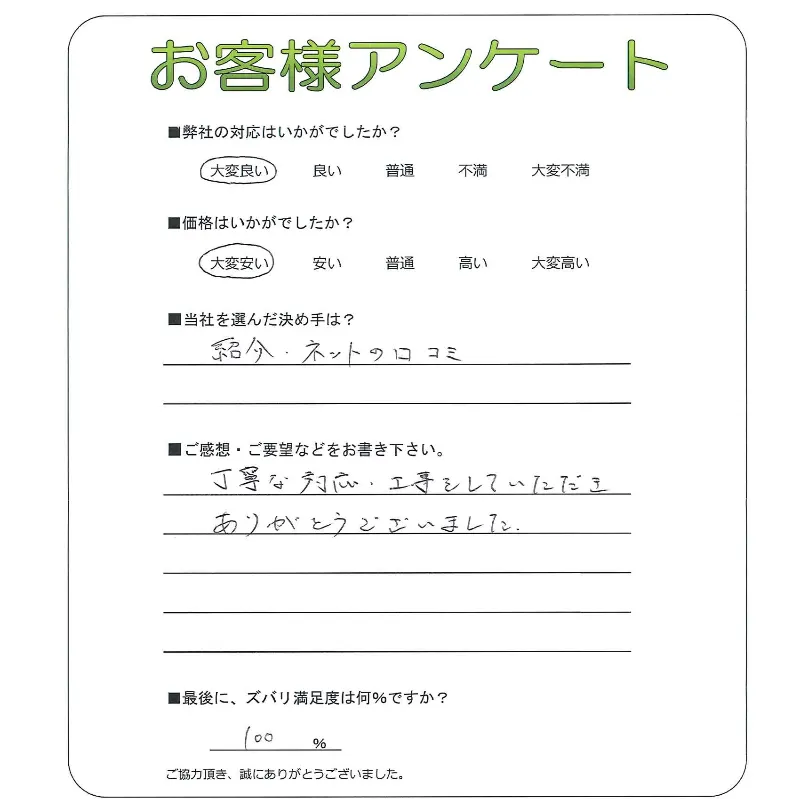 お客様アンケート
■弊社の対応はいかがでしたか？
大変良い 良い 普通 不満 大変不満
■価格はいかがでしたか？
大変安い 安い 普通 高い 大変高い
■当社を選んだ決め手は？
紹介・ネットの口コミ
■ご感想・ご要望などをお書き下さい。
丁寧な対応・工事をしていただき
ありがとうございました.
■最後に、ズバリ満足度は何%ですか？
100 %
ご協力頂き、誠にありがとうございました。